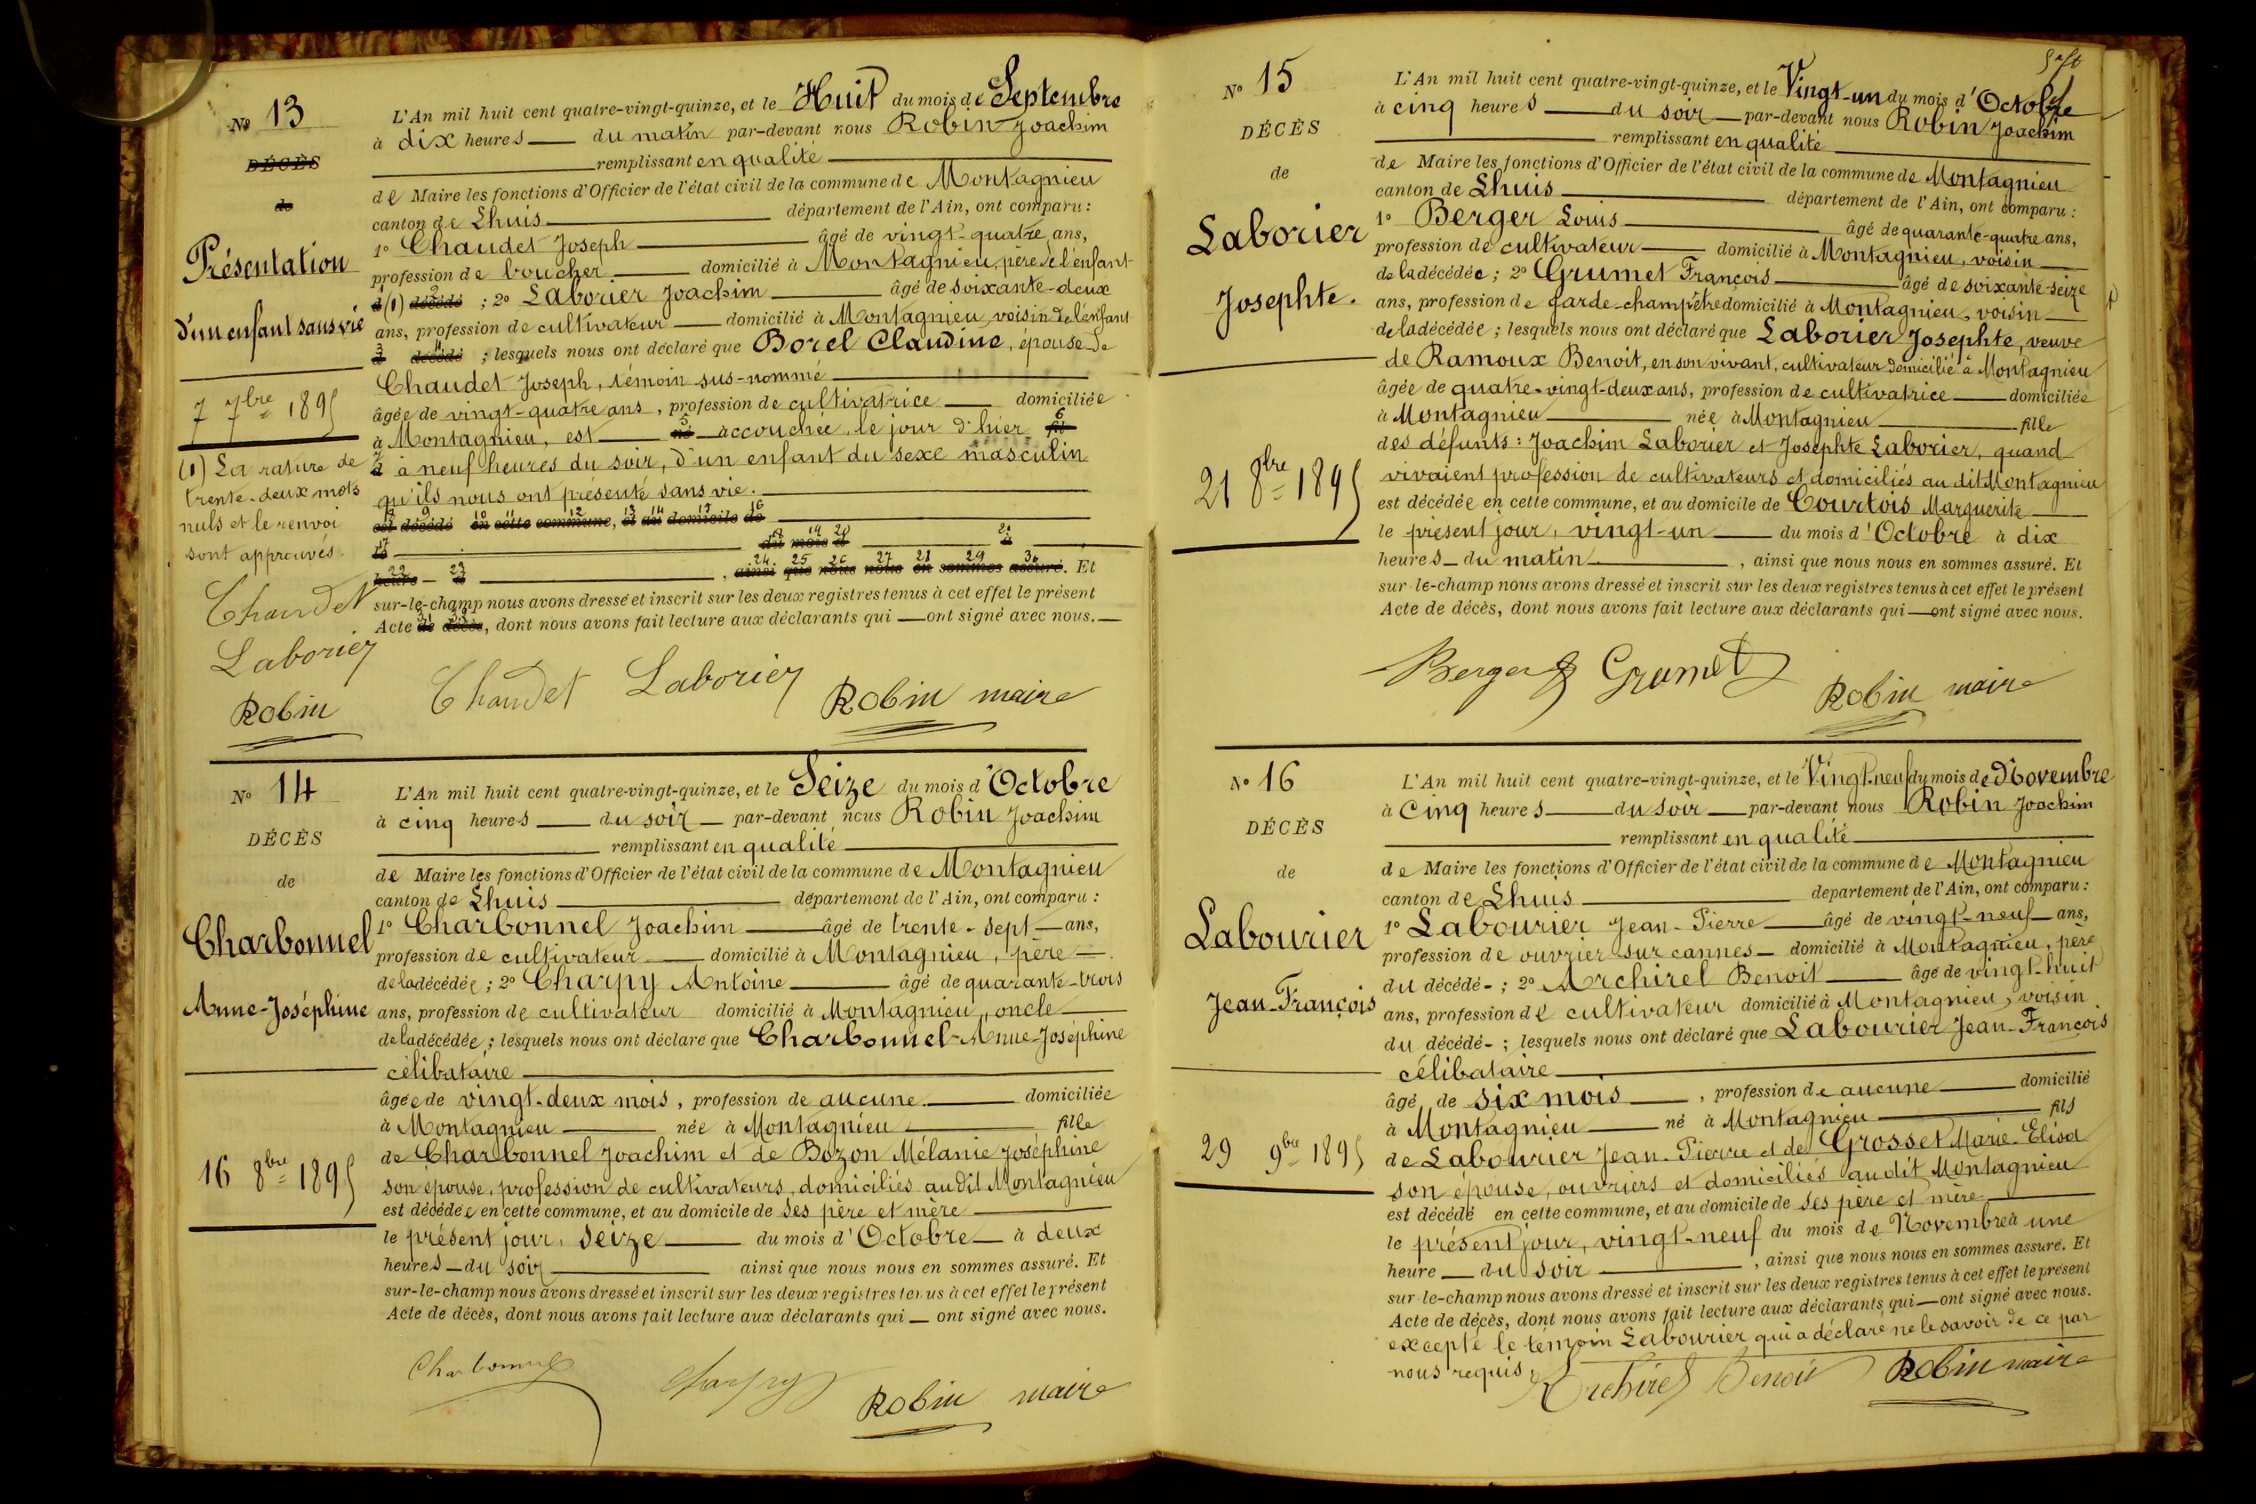 N° 13
DÉCÈS
de
Présentation
d'un enfant sans vie
7 7bre 1895
(1) La rature de
trente-deux mots
nuls et le renvoi
sont approuvés.
Chaudet
Laborier
Robin
L'An mil huit cent quatre-vingt-quinze, et le Huit du mois de Septembre
à dix heures du matin par-devant nous Robin Joachim
remplissant en qualité
de Maire les fonctions d'Officier de l'état civil de la commune de Montagnieu
canton de Lhuis département de l'Ain, ont comparu :
1° Chaudet Joseph âgé de vingt-quatre ans,
profession de boucher domicilié à Montagnieu, père de l'enfant
d (1) décédé ; 2° Laborier Joachim âgé de soixante-deux
ans, profession de cultivateur domicilié à Montagnieu, voisin de l'enfant
d décédé ; lesquels nous ont déclaré que Borel Claudine, épouse de
Chaudet Joseph, témoin sus-nommé
âgée de vingt-quatre ans, profession de cultivatrice domiciliée
à Montagnieu, est né accouchée, le jour d'hier fil
d à neuf heures du soir, d'un enfant du sexe masculin
qu'ils nous ont présenté sans vie.
est décédé en cette commune, et au domicile de
le
du mois d à
heure d , ainsi que nous nous en sommes assuré. Et
sur-le-champ nous avons dressé et inscrit sur les deux registres tenus à cet effet le présent
Acte de décès, dont nous avons fait lecture aux déclarants qui ont signé avec nous.
Chaudet Laborier Robin maire
N° 14
DÉCÈS
de
Charbonnel
Anne-Joséphine
16 8bre 1895
L'An mil huit cent quatre-vingt-quinze, et le Seize du mois d'Octobre
à cinq heures du soir par-devant nous Robin Joachim
remplissant en qualité
de Maire les fonctions d'Officier de l'état civil de la commune de Montagnieu
canton de Lhuis département de l'Ain, ont comparu :
1° Charbonnel Joachim âgé de trente-sept ans,
profession de cultivateur domicilié à Montagnieu, père
de la décédée ; 2° Charpy Antoine âgé de quarante-trois
ans, profession de cultivateur domicilié à Montagnieu, oncle
de la décédée ; lesquels nous ont déclaré que Charbonnel Anne-Joséphine
célibataire
âgée de vingt-deux mois, profession de aucune domiciliée
à Montagnieu née à Montagnieu fille
de Charbonnel Joachim et de Bozon Mélanie Joséphine
son épouse, profession de cultivateurs, domiciliés au dit Montagnieu
est décédée en cette commune, et au domicile de ses père et mère
le présent jour, seize du mois d'Octobre à deux
heures du soir ainsi que nous nous en sommes assuré. Et
sur-le-champ nous avons dressé et inscrit sur les deux registres tenus à cet effet le présent
Acte de décès, dont nous avons fait lecture aux déclarants qui ont signé avec nous.
Charbonnel Charpy Robin maire
N° 15
DÉCÈS
de
Laborier
Josephte.
21 8bre 1895
L'An mil huit cent quatre-vingt-quinze, et le Vingt-un du mois d'Octobre
à cinq heures du soir par-devant nous Robin Joachim
remplissant en qualité
de Maire les fonctions d'Officier de l'état civil de la commune de Montagnieu
canton de Lhuis département de l'Ain, ont comparu :
1° Berger Louis âgé de quarante-quatre ans,
profession de cultivateur domicilié à Montagnieu, voisin
de la décédée ; 2° Grumet François âgé de soixante-seize
ans, profession de garde-champêtre domicilié à Montagnieu, voisin
de la décédée ; lesquels nous ont déclaré que Laborier Josephte, veuve
de Ramoux Benoit, en son vivant, cultivateur domicilié à Montagnieu
âgée de quatre-vingt-deux ans, profession de cultivatrice domiciliée
à Montagnieu née à Montagnieu fille
des défunts : Joachim Laborier et Josephte Laborier, quand
vivaient profession de cultivateurs et domiciliés au dit Montagnieu
est décédée en cette commune, et au domicile de Courtois Marguerite
le présent jour, vingt-un du mois d'Octobre à dix
heures du matin , ainsi que nous nous en sommes assuré. Et
sur-le-champ nous avons dressé et inscrit sur les deux registres tenus à cet effet le présent
Acte de décès, dont nous avons fait lecture aux déclarants qui ont signé avec nous.
Berger Grumet Robin maire
N° 16
DÉCÈS
de
Labourier
Jean-François
29 9bre 1895
L'An mil huit cent quatre-vingt-quinze, et le Vingt-neuf du mois de Novembre
à Cinq heures du soir par-devant nous Robin Joachim
remplissant en qualité
de Maire les fonctions d'Officier de l'état civil de la commune de Montagnieu
canton de Lhuis département de l'Ain, ont comparu :
1° Labourier Jean-Pierre âgé de vingt-neuf ans,
profession de ouvrier sur cannes domicilié à Montagnieu, père
du décédé ; 2° Archirel Benoit âgé de vingt-huit
ans, profession de cultivateur domicilié à Montagnieu, voisin
du décédé ; lesquels nous ont déclaré que Labourier Jean-François
célibataire
âgé de six mois , profession de aucune domicilié
à Montagnieu né à Montagnieu fils
de Labourier Jean-Pierre et de Grosset Marie-Elisa
son épouse, ouvriers et domiciliés au dit Montagnieu
est décédé en cette commune, et au domicile de ses père et mère
le présent jour, vingt-neuf du mois de Novembre à une
heure du soir , ainsi que nous nous en sommes assuré. Et
sur-le-champ nous avons dressé et inscrit sur les deux registres tenus à cet effet le présent
Acte de décès, dont nous avons fait lecture aux déclarants qui ont signé avec nous.
excepté le témoin Labourier qui a déclaré ne le savoir de ce par
nous requis. Archirel Benoit Robin maire